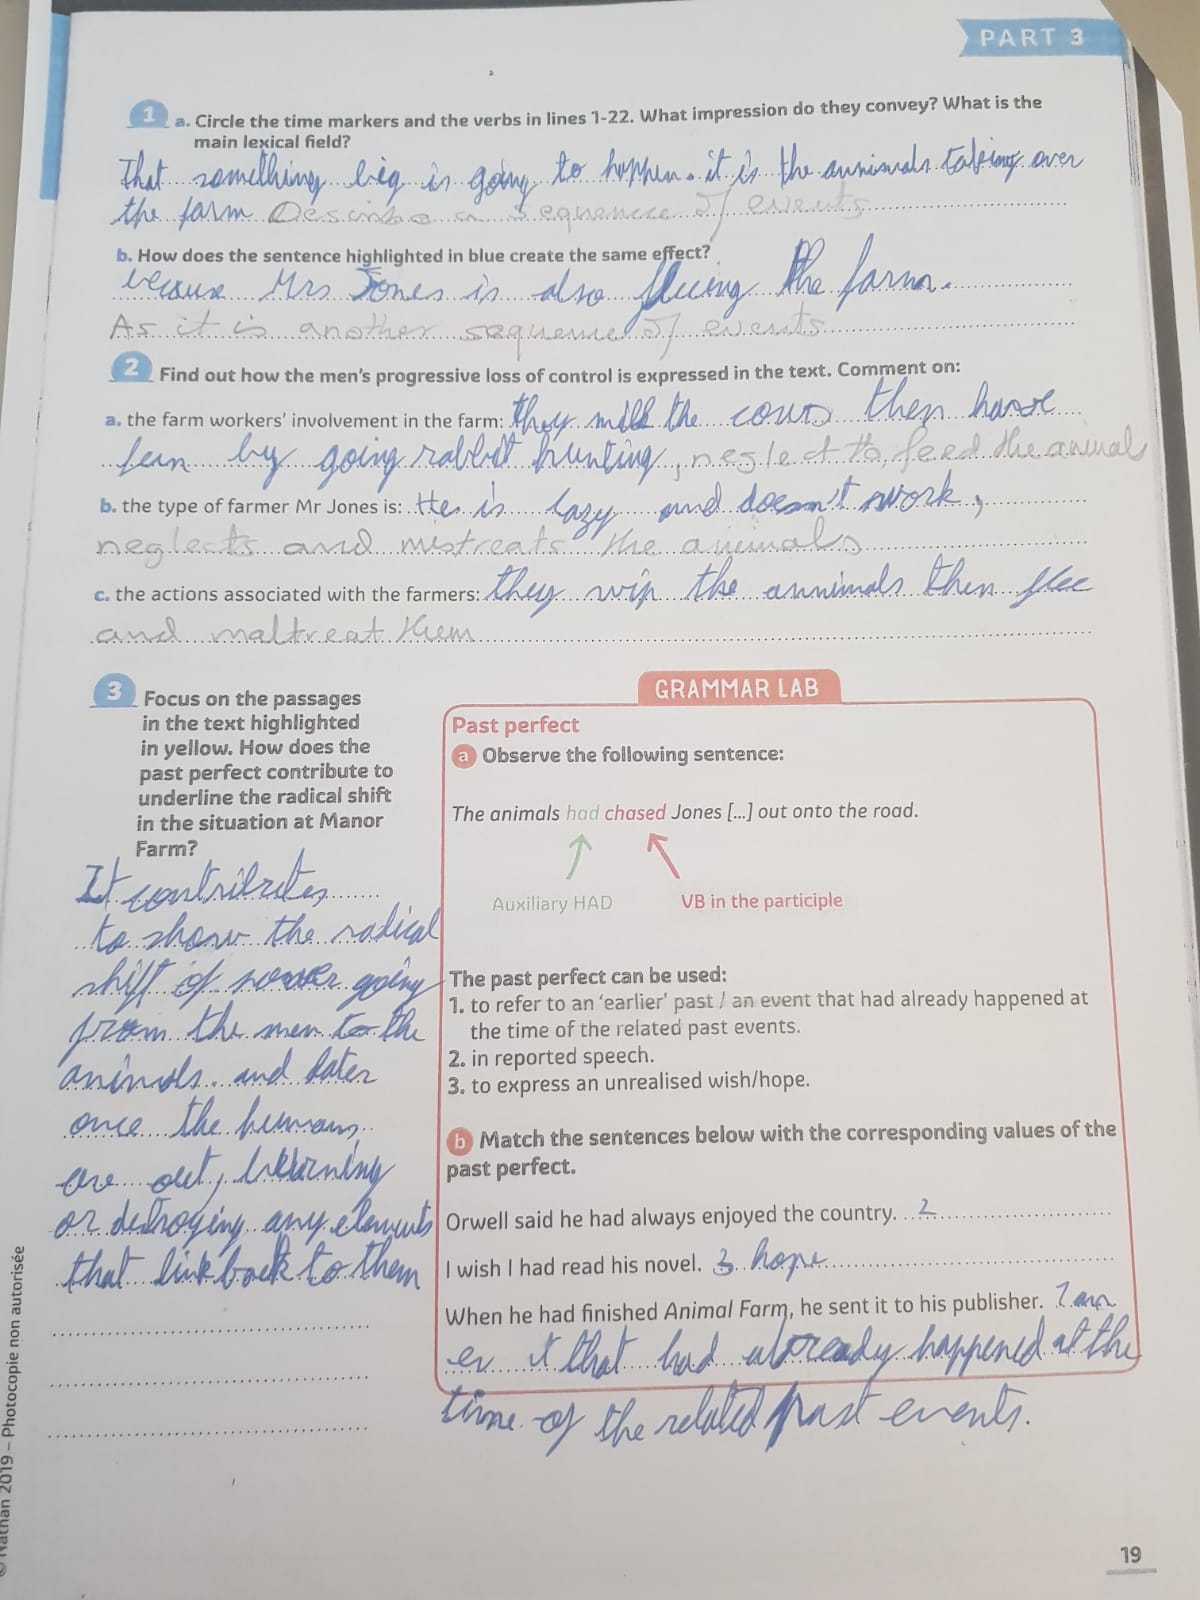 PART 3
1 a. Circle the time markers and the verbs in lines 1-22. What impression do they convey? What is the
main lexical field?
That something big is going to happen. it is the annimals taking over
the farm Describe a sequence of events
b. How does the sentence highlighted in blue create the same effect?
because Mrs Jones is also fleeing the farm.
As it is another sequence of events
2 Find out how the men's progressive loss of control is expressed in the text. Comment on:
a. the farm workers' involvement in the farm: they milk the cows then have
fun by going rabbit hunting, neglect to feed the animals
b. the type of farmer Mr Jones is: He is lazy and doesn't work,
neglects and mistreats the animals
c. the actions associated with the farmers: they wip the annimals then flee
and maltreat them
3 Focus on the passages
in the text highlighted
in yellow. How does the
past perfect contribute to
underline the radical shift
in the situation at Manor
Farm?
It contributes
to show the radical
shift of power going
from the men to the
animals. and later
once the humans
are out, burning
or destroying any elements
that link back to them
GRAMMAR LAB
Past perfect
a Observe the following sentence:
The animals had chased Jones [...] out onto the road.
Auxiliary HAD VB in the participle
The past perfect can be used:
1. to refer to an 'earlier' past / an event that had already happened at
the time of the related past events.
2. in reported speech.
3. to express an unrealised wish/hope.
b Match the sentences below with the corresponding values of the
past perfect.
Orwell said he had always enjoyed the country. 2
I wish I had read his novel. 3 hope
When he had finished Animal Farm, he sent it to his publisher. 1 an
ev t that had already happened at the
time of the related past events.
© Nathan 2019 – Photocopie non autorisée
19